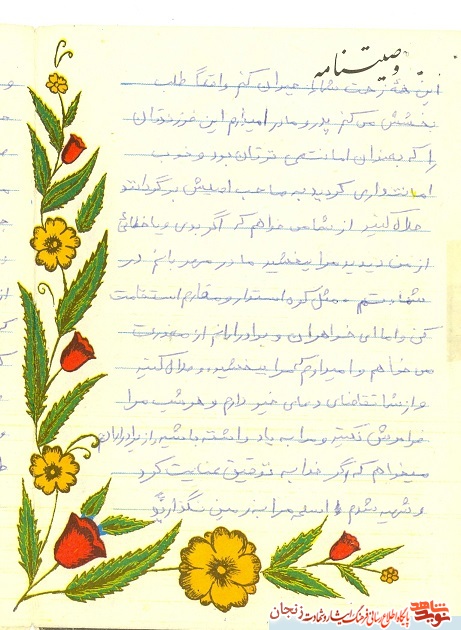 وصیتنامه
این همه زحمت شما را جبران کنم واقعاً طلب
بخشش می کنم پدر و مادر امیدوارم این فرزندتان
را که بعنوان امانتی نزدتان بود و خوب
امانتداری کردید به صاحب اصلیش برگرداندید
حلال کنید از شما می خواهم که اگر بدی و یا خطائی
از من دیدید مرا ببخشید مادر مهربانم در
شهادتم مثل کوه استوار و مقاوم استقامت
کن و اما ای خواهران و برادرانم از معذرت
می خواهم و امیدوارم که مرا ببخشید و حلال کنید
و از شما تقاضای دعای خیر دارم و هر شب مرا
فراموش نکنید و مرا به یاد داشته باشید از برادرانم
میخواهم که اگر خدا به توفیق عنایت کرد
و شهید شدم اسلحه مرا بر زمین نگذارید
نوید شاهد
پایگاه اطلاع رسانی فرهنگ ایثار و شهادت زنجان